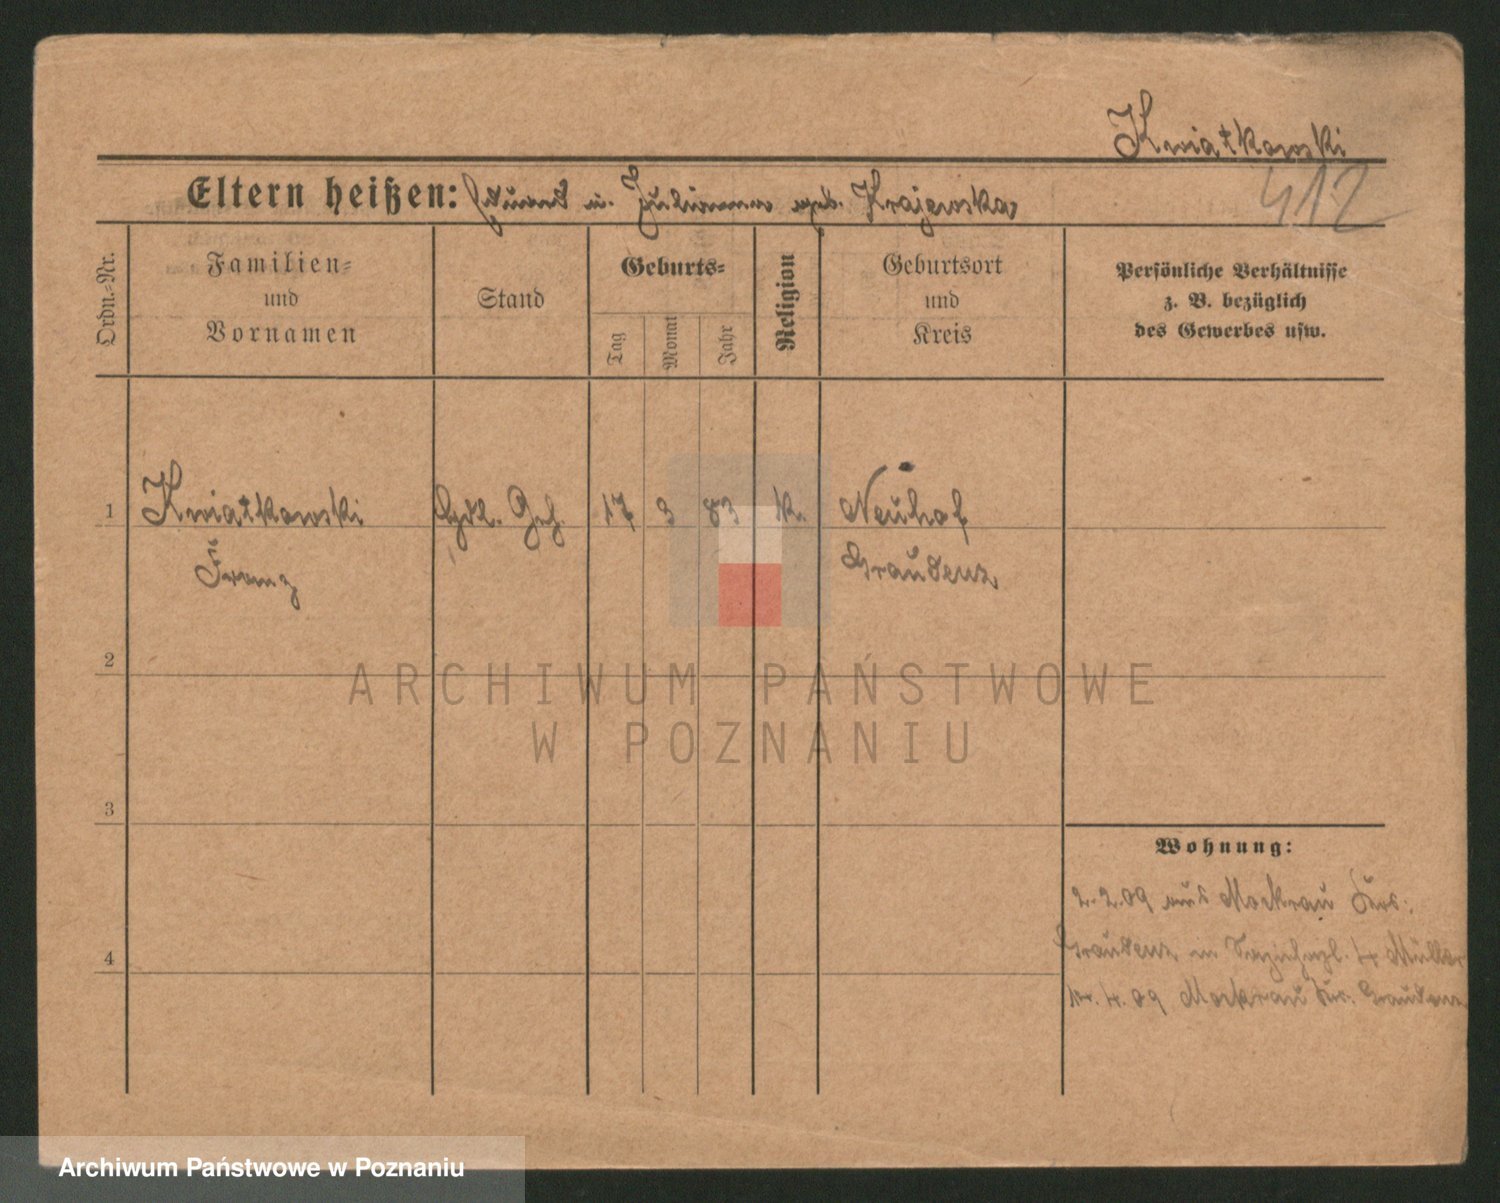 Kwiatkowski
412
Eltern heißen: u. geb. Krajewska
Ordn.-Nr.
Familien-
und
Vornamen
Stand
Geburts-
Tag
Monat
Jahr
Religion
Geburtsort
und
Kreis
Persönliche Verhältnisse
z. B. bezüglich
des Gewerbes usw.
1
Kwiatkowski
Franz
17
3
83
k.
Neuhof
Graudenz
2
3
4
Wohnung:
2.2.09 aus Mockrau Krs.
Graudenz 4 Müller
4.09 Mockrau Krs. Graudenz
ARCHIWUM PAŃSTWOWE
W POZNANIU
Archiwum Państwowe w Poznaniu